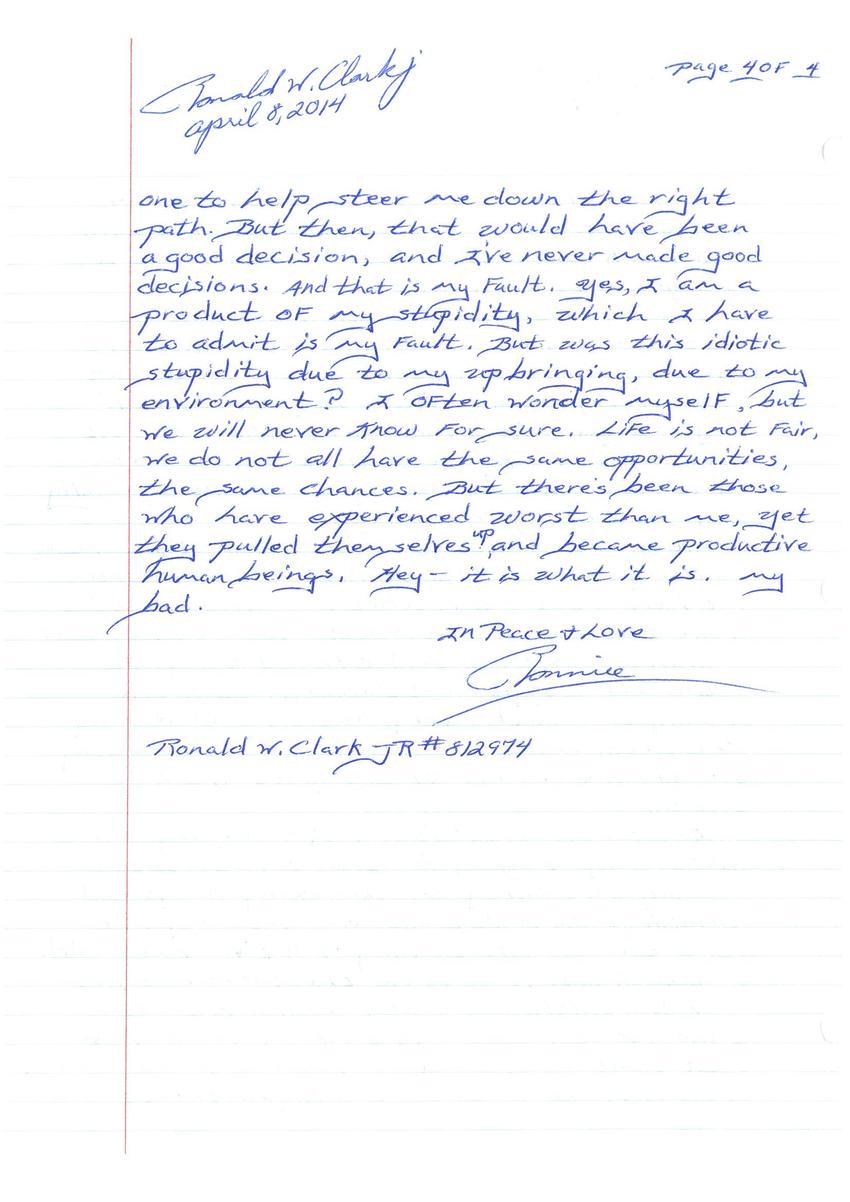 Ronald W. Clark jr
page 4 OF 4
april 8, 2014
one to help steer me down the right
path. But then, that would have been
a good decision, and I've never made good
decisions. And that is my Fault. yes, I am a
product OF my stupidity, which I have
to admit is my Fault. But was this idiotic
stupidity due to my upbringing, due to my
environment? I OFten wonder myselF, but
we will never Know For sure. LiFe is not Fair,
we do not all have the same opportunities,
the same chances. But there's been those
who have experienced worst than me, yet
they pulled themselves up, and became productive
human beings. Hey - it is what it is. my
bad.
In Peace & Love
Ronnie
Ronald W. Clark JR # 812974